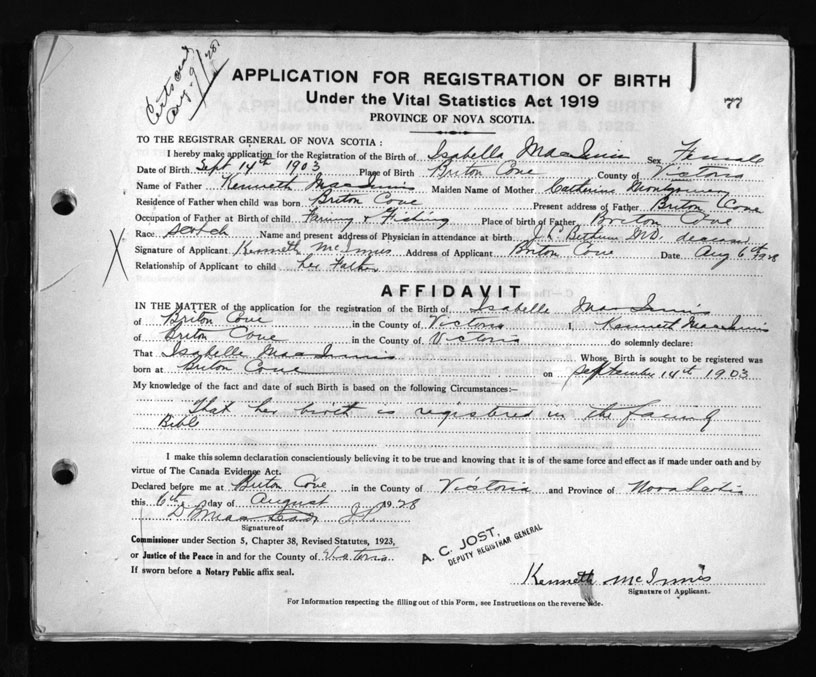 Certs and
Aug. 9/28
77
APPLICATION FOR REGISTRATION OF BIRTH
Under the Vital Statistics Act 1919
PROVINCE OF NOVA SCOTIA.
TO THE REGISTRAR GENERAL OF NOVA SCOTIA:
I hereby make application for the Registration of the Birth of Isabella MacInnis Sex Female
Date of Birth Sept 14th 1903 Place of Birth Briton Cove County of Victoria
Name of Father Kenneth MacInnis Maiden Name of Mother Catherine Montgomery
Residence of Father when child was born Briton Cove Present address of Father Briton Cove
Occupation of Father at Birth of child Farming & Fishing Place of birth of Father Briton Cove
Race Scotch Name and present address of Physician in attendance at birth J L Bethune MD deceased
X Signature of Applicant Kenneth McInnis Address of Applicant Briton Cove Date Aug 6th 1928
Relationship of Applicant to child her Father
AFFIDAVIT
IN THE MATTER of the application for the registration of the Birth of Isabella MacInnis
of Briton Cove in the County of Victoria I, Kenneth MacInnis
of Briton Cove in the County of Victoria do solemnly declare:
That Isabella MacInnis Whose Birth is sought to be registered was
born at Briton Cove on September 14th 1903
My knowledge of the fact and date of such Birth is based on the following Circumstances:—
That her birth is registered in the family
Bible
I make this solemn declaration conscientiously believing it to be true and knowing that it is of the same force and effect as if made under oath and by
virtue of The Canada Evidence Act.
Declared before me at Briton Cove in the County of Victoria and Province of Nova Scotia
this 6th day of August 1928
D Mac J.P.
Signature of
Commissioner under Section 5, Chapter 38, Revised Statutes, 1923,
or Justice of the Peace in and for the County of Victoria
If sworn before a Notary Public affix seal.
A. C. JOST,
DEPUTY REGISTRAR GENERAL
Kenneth McInnis
Signature of Applicant.
For Information respecting the filling out of this Form, see Instructions on the reverse side.